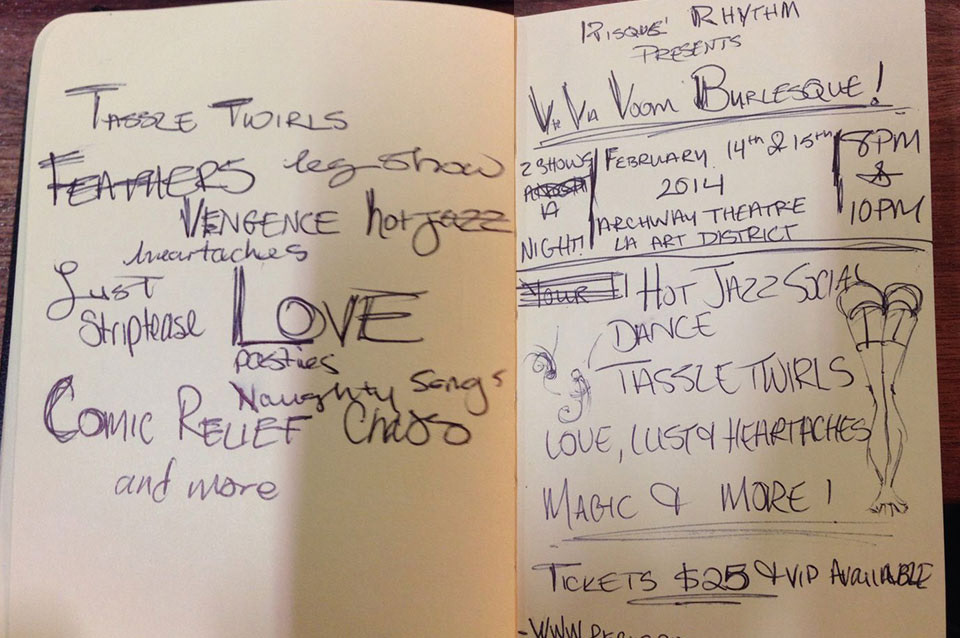 TASSLE TWIRLS
FEATHERS leg show
VENGENCE hot jazz
heartaches
Lust
Striptease LOVE
pasties
Naughty Songs
COMIC RELIEF Chaos
and more
RISQUE' RHYTHM
PRESENTS
Va Va Voom BURLESQUE!
2 SHOWS
A
NIGHT!
FEBRUARY 14th & 15th
2014
ARCHWAY THEATRE
LA ART DISTRICT
8PM
&
10PM
YOUR HOT JAZZ SOCIAL
DANCE
TASSLE TWIRLS
LOVE, LUST & HEARTACHES
MAGIC & MORE!
TICKETS $25 & VIP AVAILABLE